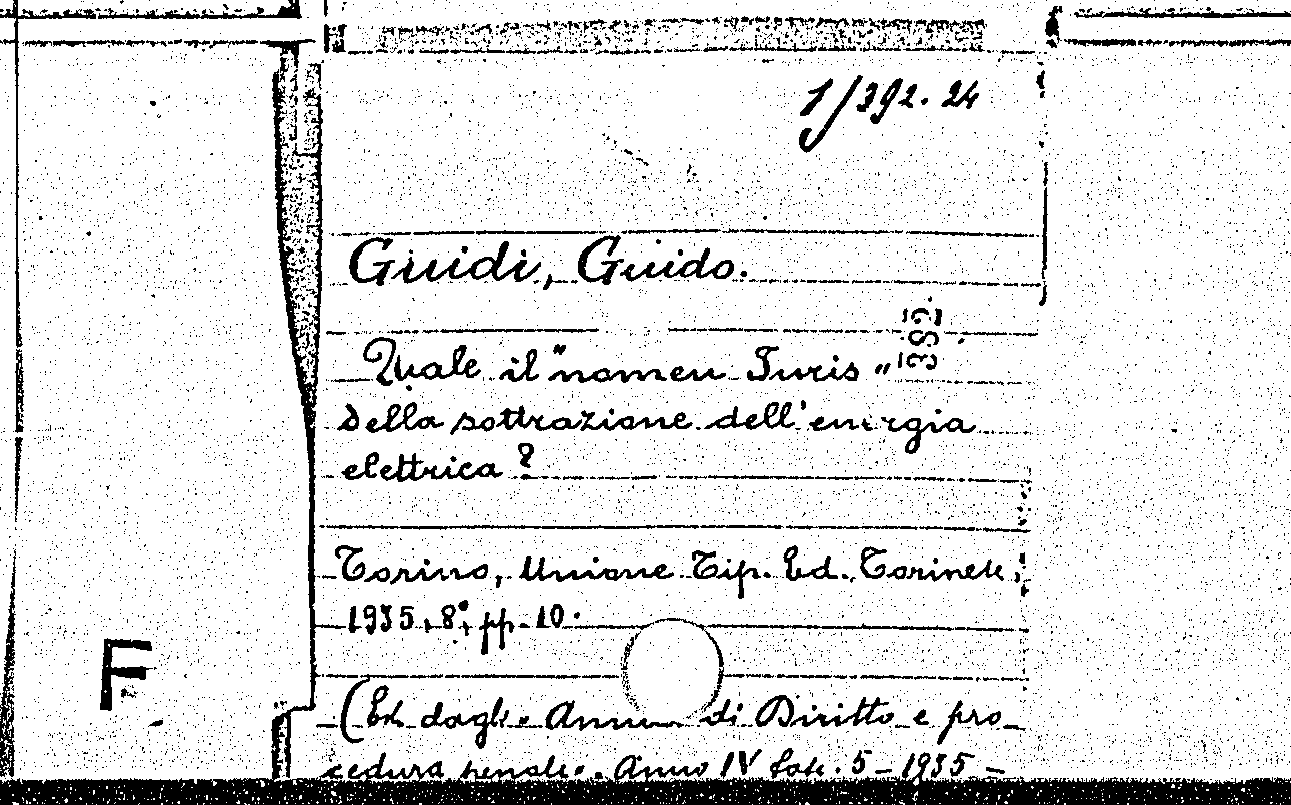 1/392.24
Guidi, Guido.
Quale il "nomen Juris"
382.
della sottrazione dell'energia
elettrica?
Torino, Unione Tip. Ed. Torinese,
1935, 8°, pp. 10.
F
(Est. dagli Annali di Diritto e pro_
cedura penale. Anno IV Fasc. 5 - 1935 -